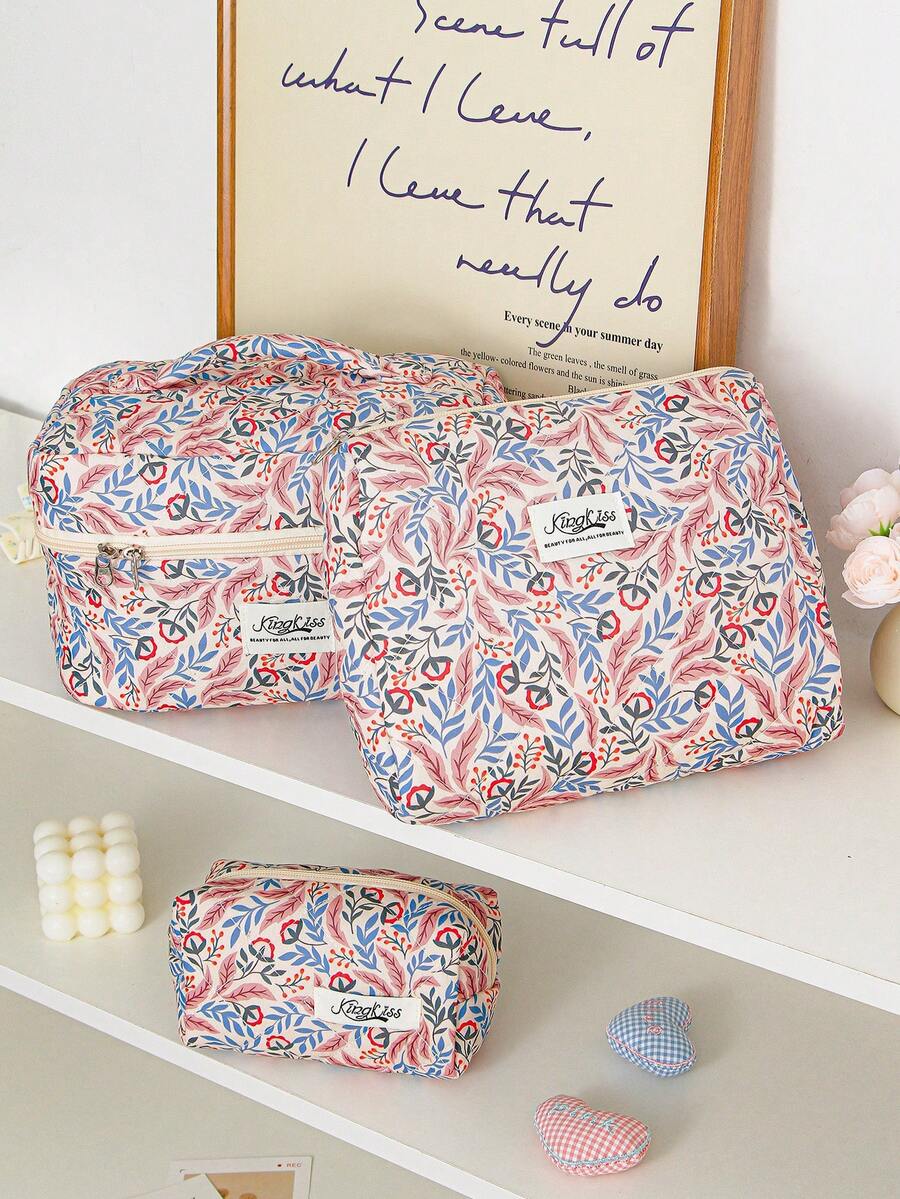 Scene full of
what I love,
I love that
really do
Every scene in your summer day
The green leaves , the smell of grass
the yellow- colored flowers and the sun is shining
KingKiss
BEAUTY FOR ALL,ALL FOR BEAUTY
KingKiss
BEAUTY FOR ALL,ALL FOR BEAUTY
KingKiss
REC